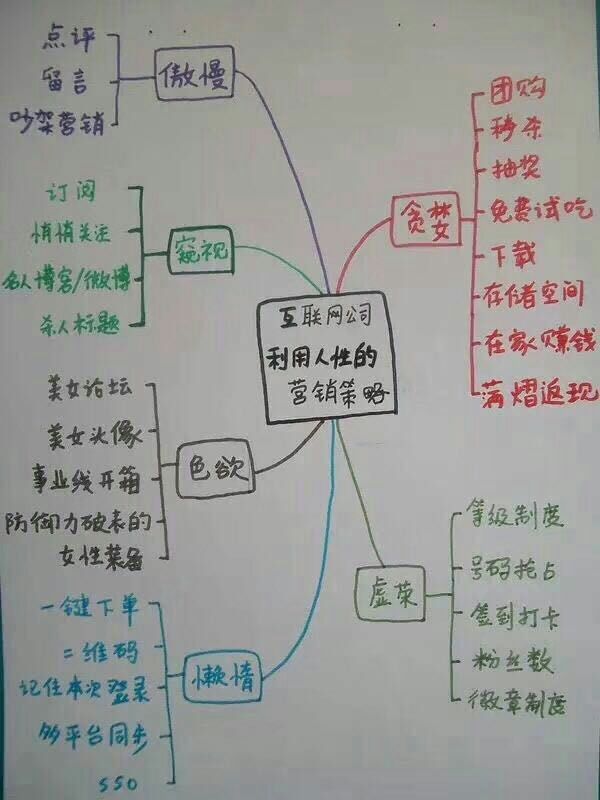 互联网公司
利用人性的
营销策略
傲慢
点评
留言
吵架营销
窥视
订阅
悄悄关注
名人博客/微博
杀人标题
色欲
美女论坛
美女头像
事业线开箱
防御力破表的
女性装备
懒惰
一键下单
二维码
记住本次登录
多平台同步
SSO
贪婪
团购
秒杀
抽奖
免费试吃
下载
存储空间
在家赚钱
满熠返现
虚荣
等级制度
号码抢占
签到打卡
粉丝数
徽章制度